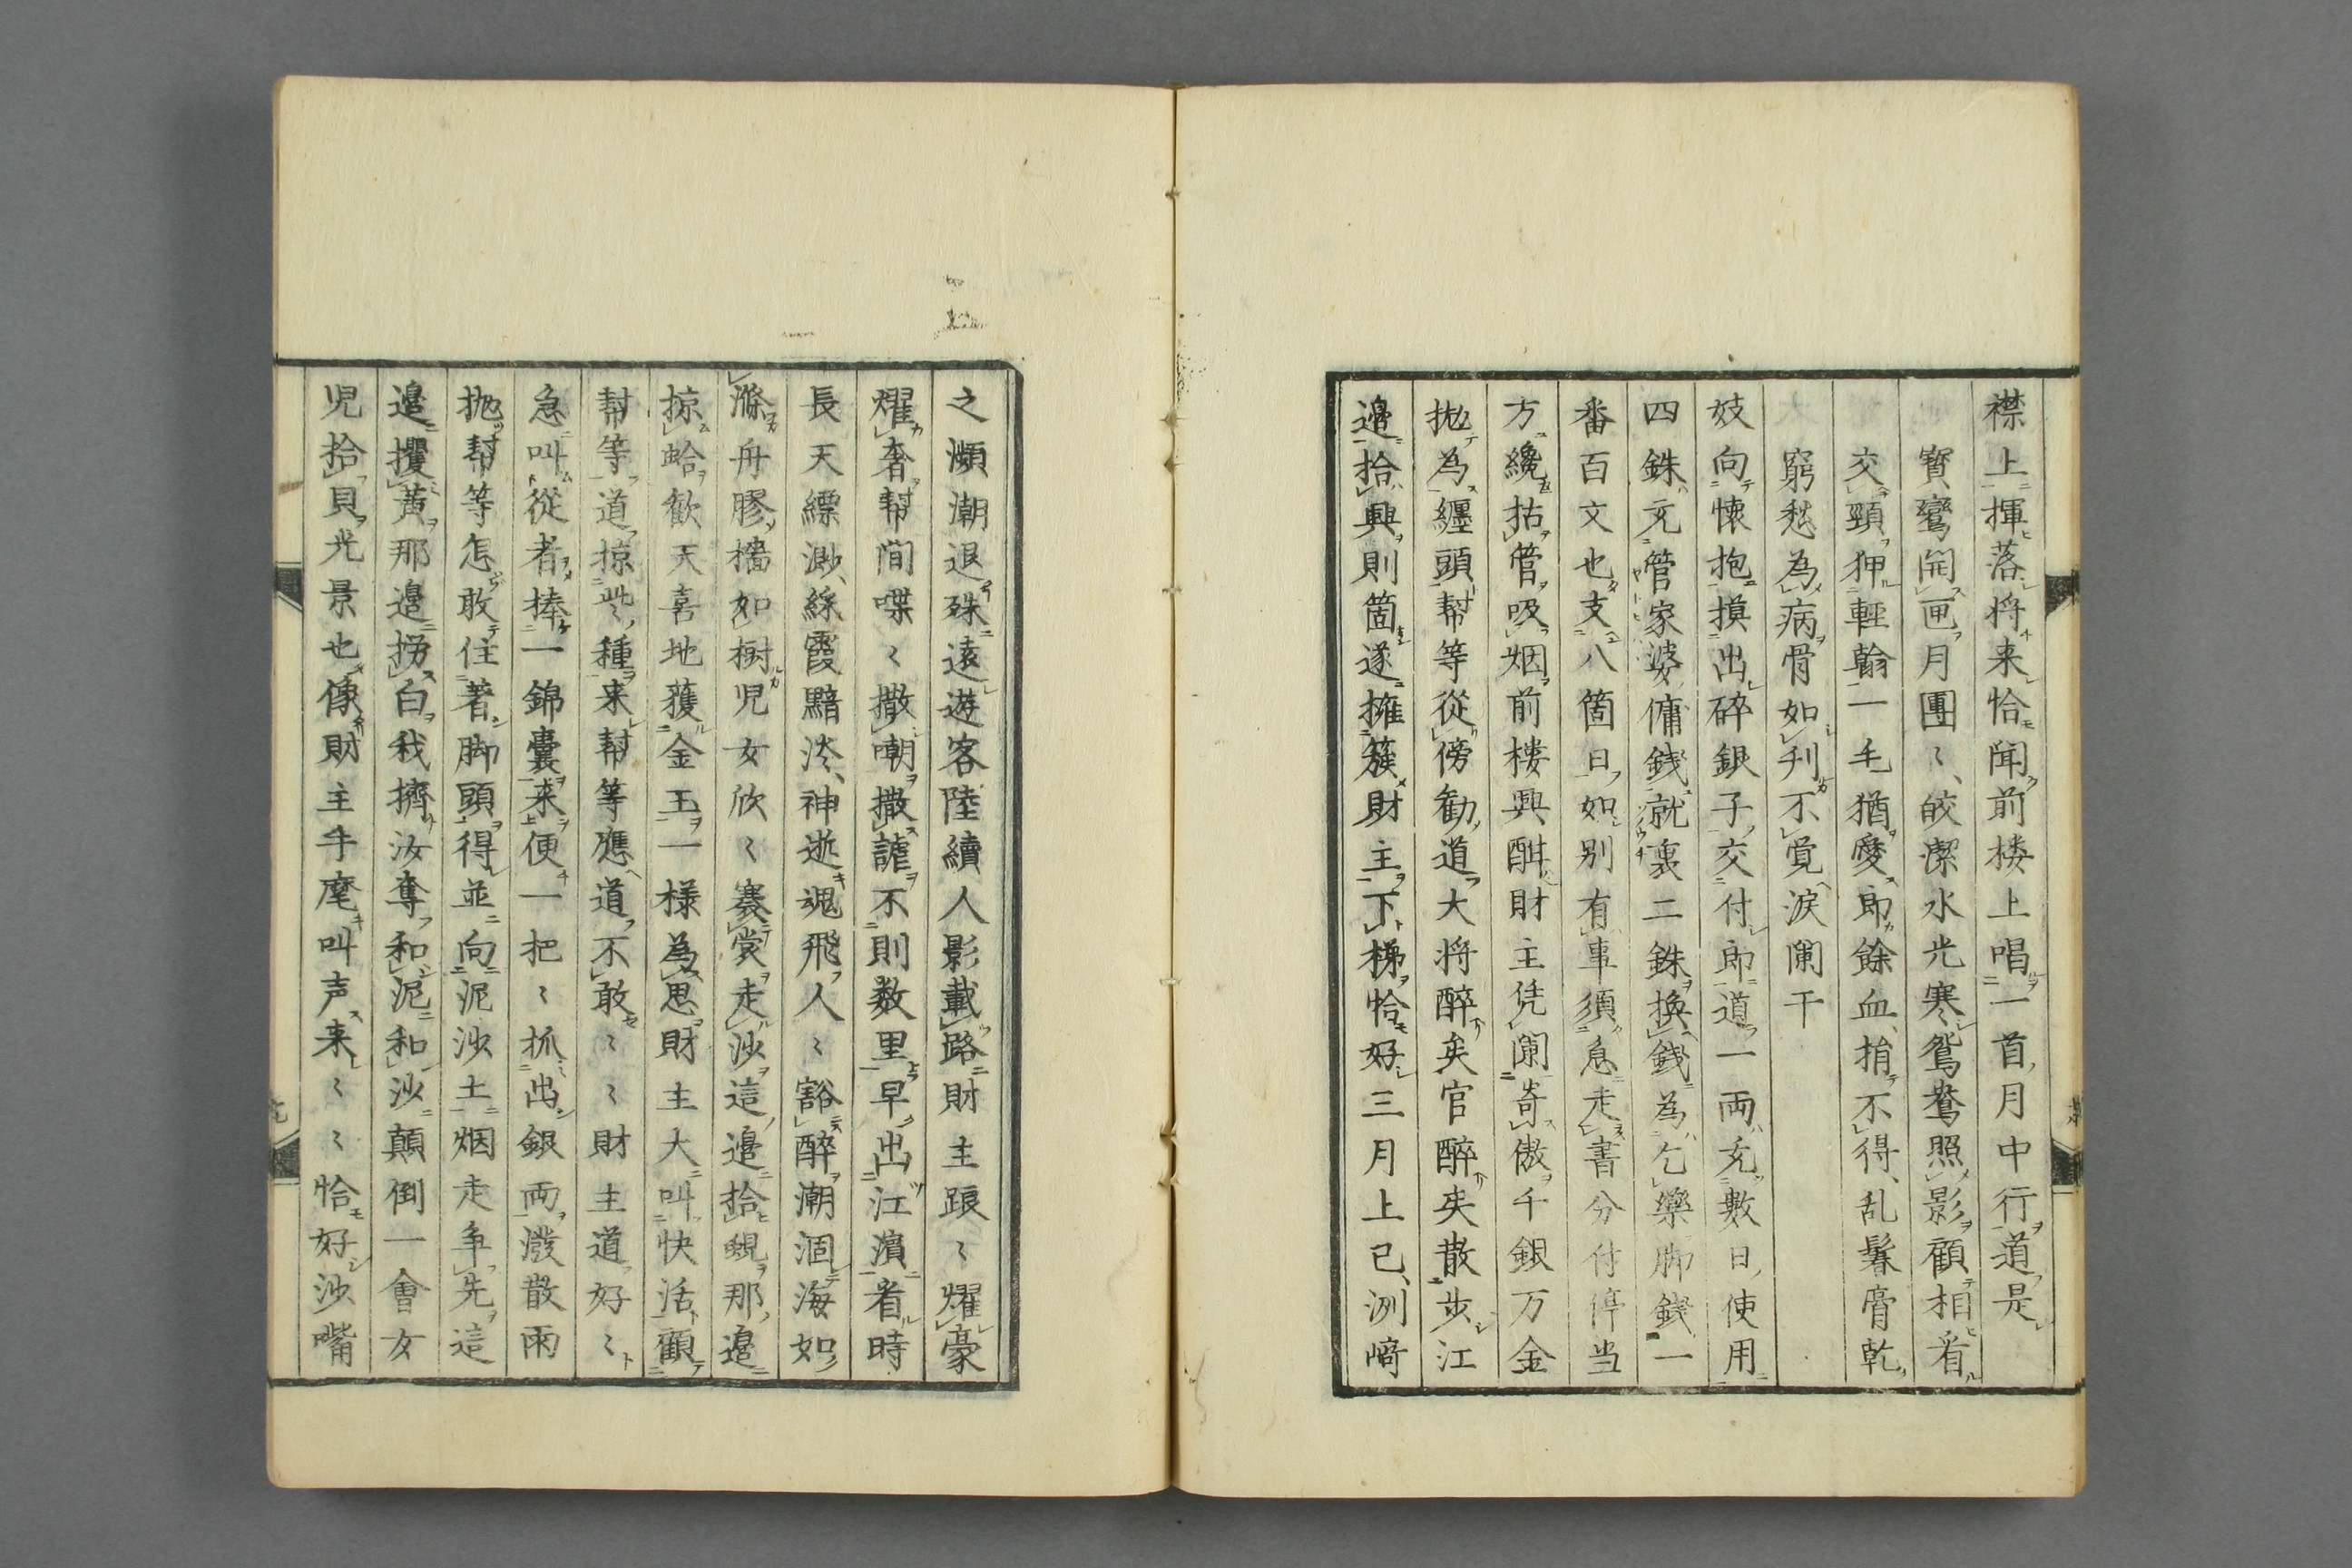 襟上揮落将来恰聞前楼上唱一首月中行道是
寳鸞開匣月團〻皎潔水光寒鴛鴦照影顧相看
交頸狎輕翰一毛猶愛郎餘血捐不得乱鬢膏乾
窮愁為病骨如刋不覚涙闌干
妓向懐抱摸出碎銀子交付郎道一両充數日使用
四銖充管家婆傭銭就裏二銖換銭為乞藥脚銭一
番百文也支八箇日如別有事須急走書分付停当
方纔拈管吸烟前楼興酣財主凭闌寄傲千銀万金
抛為纒頭幇等從傍勧道大将醉矣官醉矣散歩江
邉拾興則箇遂擁簇財主下梯恰好三月上已洌﨑
之瀕潮退殊遠遊客陸續人影載路財主踉〻燿豪
燿奢幇間喋〻撒嘲撒謔不則数里早出江濵看時
長天縹渺綵霞黯淡神逝魂飛人〻豁醉潮涸海如
滌舟膠檣如樹児女欣〻褰裳走沙這邉拾蜆那邉
掠蛤歓天喜地獲金玉一様為思財主大叫快活顧
幇等道掠些種来幇等應道不敢〻〻財主道好〻
急叫從者捧一錦嚢来便一把〻抓出銀両潑散雨
抛幇等怎敢住著脚頭得並向泥沙土烟走争先這
邉攫黄那邉拐白我擠汝奪和泥和沙顛倒一會女
児拾貝光景也像財主手麾叫声来〻〻恰好沙嘴